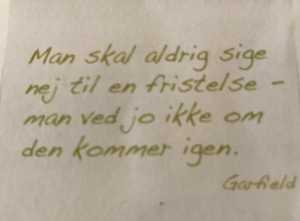 Man skal aldrig sige
nej til en fristelse –
man ved jo ikke om
den kommer igen.
Garfield